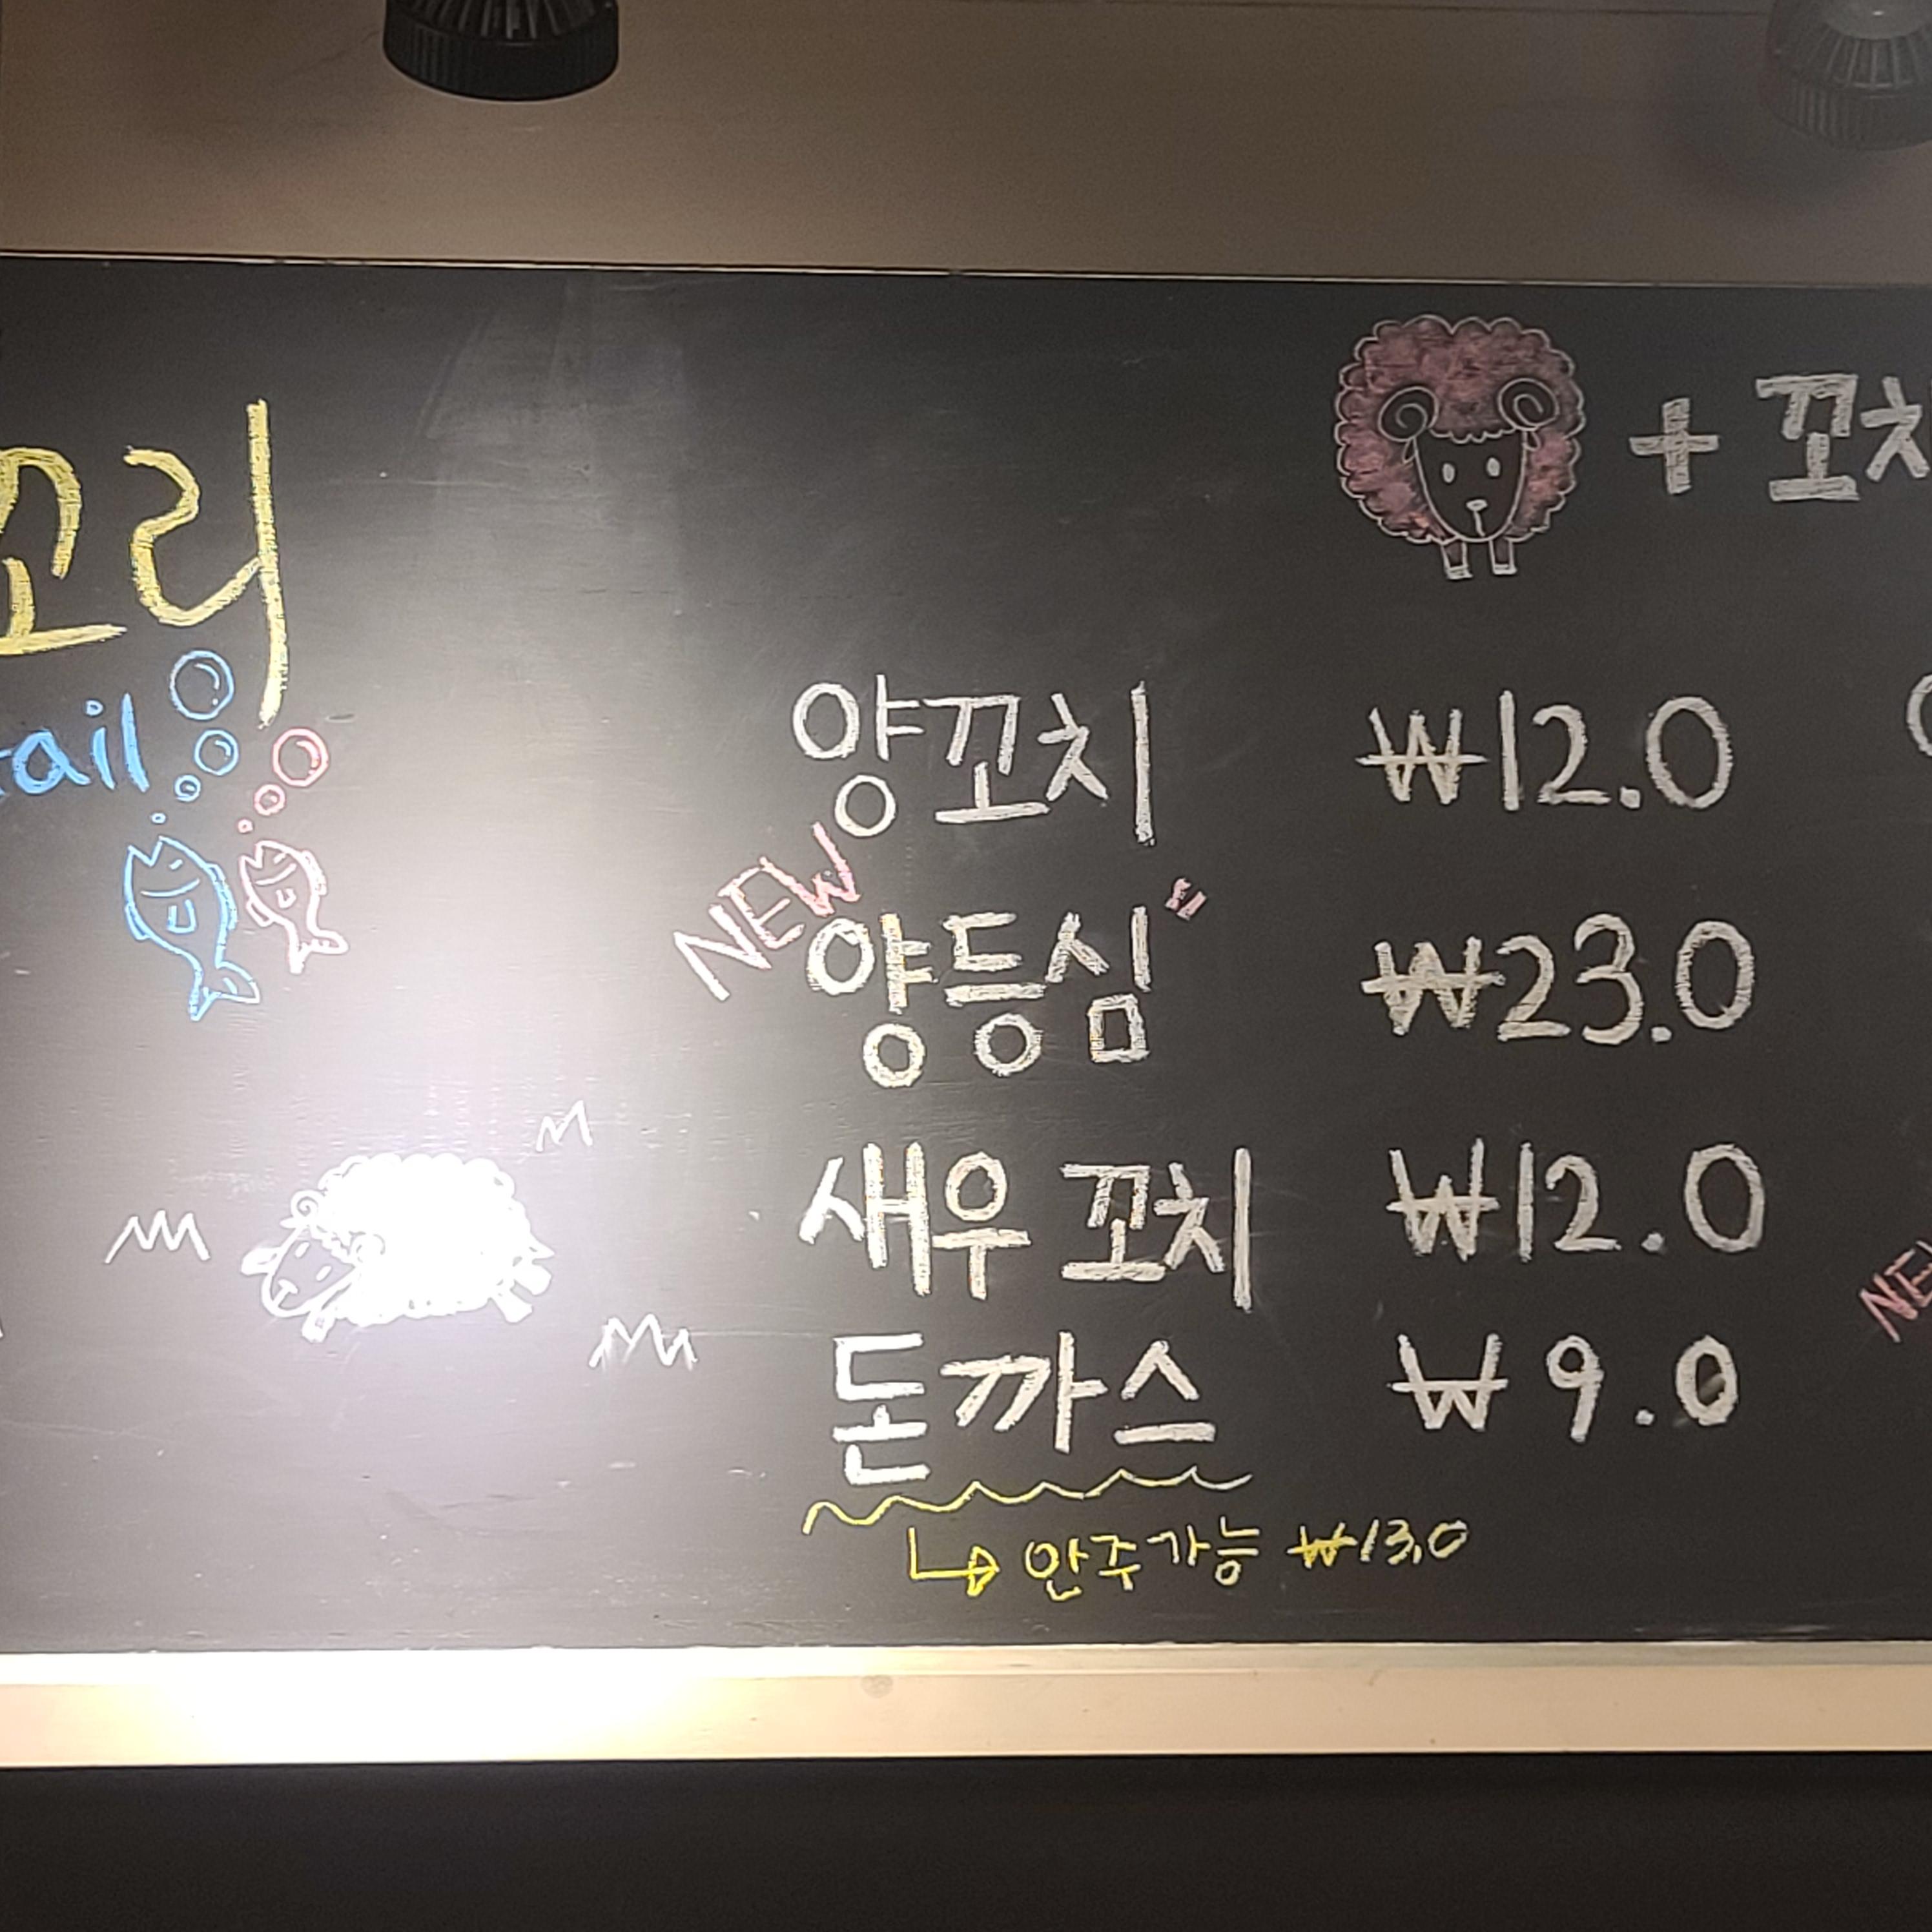 꼬리
tail
+ 꼬치
양꼬치 ₩12.0
NEW
양등심 ₩23.0
새우 꼬치 ₩12.0
돈까스 ₩9.0
안주가능 ₩13.0
NEW